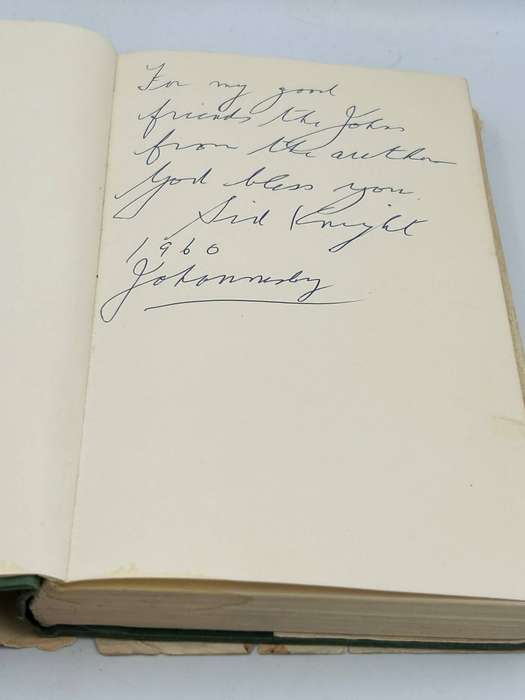 For my good
friends the Johns
from the author
God bless you.
Sid Knight
1960
Johannesbg